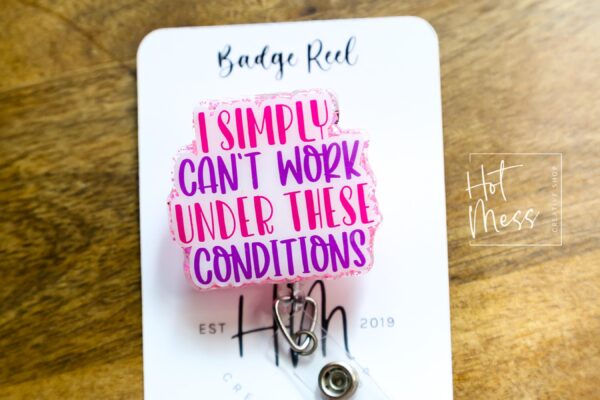 Badge Reel
I SIMPLY
CAN'T WORK
UNDER THESE
CONDITIONS
EST HM 2019
Hot
Mess
CREATIVE SHOP